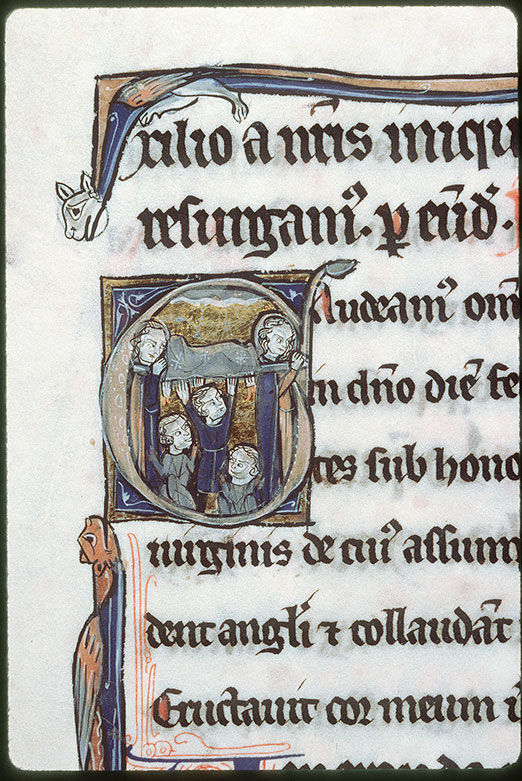 xilio a nr̄is iniqu
resurgam⁹. ꝑ eūd̄.
Gaudeam⁹ om
in dn̄o diē fe
tes sub hono
uirginis de cui⁹ assum
dent angl̄i ⁊ collaudāt
Eructauit cor meum